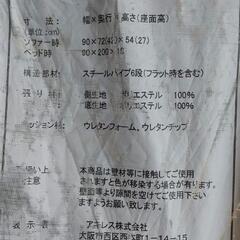 寸 法: 幅×奥行×高さ(座面高)
(単位:cm)
ソファー時 90×72(42)×54(27)
ベッド時 90×200×
構造部材: スチールパイプ6段(フラット時を含む)
張り材: 表生地 ポリエステル 100%
裏生地 ポリエステル 100%
クッション材: ウレタンフォーム、ウレタンチップ
扱い上
注意
本商品は壁材等に接触してご使用
されますと色が移染する場合が有ります。
壁面等より隙間を空けてご使用下さい
ますようお願いします。
表示者 アキレス株式会社
大阪市西区西本町1-14-15